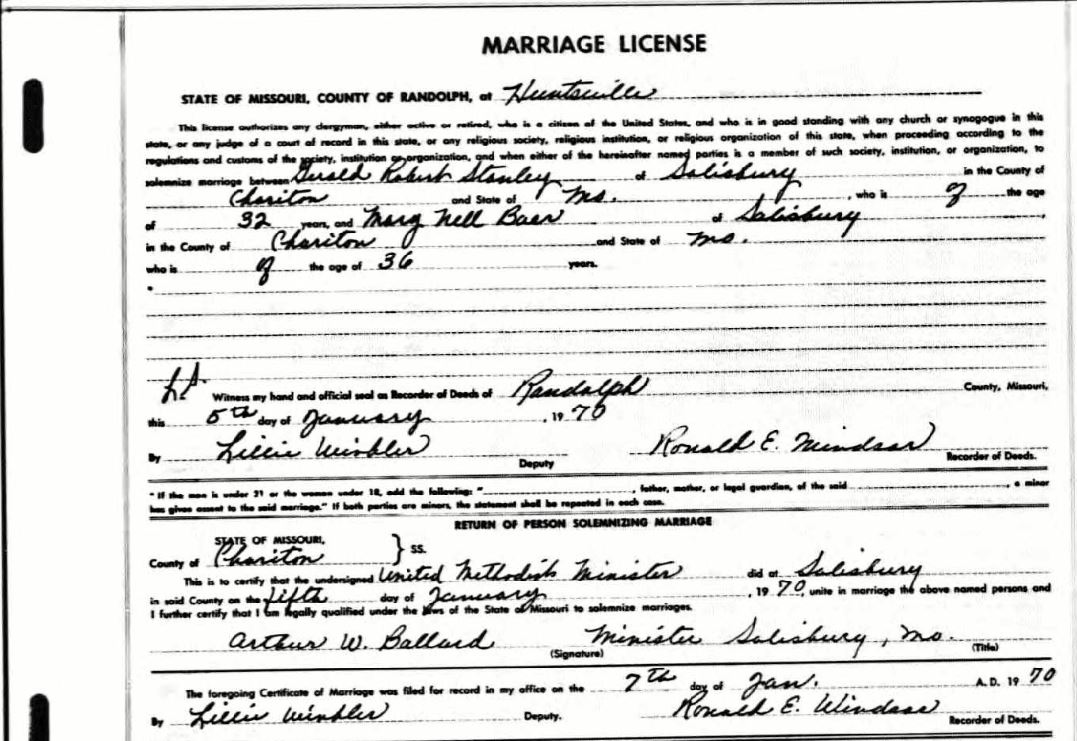 MARRIAGE LICENSE
STATE OF MISSOURI, COUNTY OF RANDOLPH, at Huntsville
This license authorizes any clergyman, either active or retired, who is a citizen of the United States, and who is in good standing with any church or synagogue in this
state, or any judge of a court of record in this state, or any religious society, religious institution, or religious organization of this state, when proceeding according to the
regulations and customs of the society, institution or organization, and when either of the hereinafter named parties is a member of such society, institution, or organization, to
solemnize marriage between Gerald Robert Stanley of Salisbury in the County of
Chariton and State of Mo. , who is of the age
of 32 years, and Mary Nell Baer of Salisbury ,
in the County of Chariton and State of Mo.
who is of the age of 36 years.
*
L.S. Witness my hand and official seal as Recorder of Deeds of Randolph County, Missouri,
this 5th day of January , 19 70
By Lillie Winkler Deputy Ronald E. Recorder of Deeds.
" If the man is under 21 or the woman under 18, add the following: " , father, mother, or legal guardian, of the said , a minor
has given assent to the said marriage." If both parties are minors, the statement shall be repeated in each case.
RETURN OF PERSON SOLEMNIZING MARRIAGE
STATE OF MISSOURI,
County of Chariton } SS.
This is to certify that the undersigned United Methodist Minister did at Salisbury
in said County on the Fifth day of January , 19 70, unite in marriage the above named persons and
I further certify that I am legally qualified under the laws of the State of Missouri to solemnize marriages.
Arthur W. Ballard Minister Salisbury, Mo.
(Signature) (Title)
The foregoing Certificate of Marriage was filed for record in my office on the 7th day of Jan. A.D. 19 70
By Lillie Winkler Deputy. Ronald E. Recorder of Deeds.